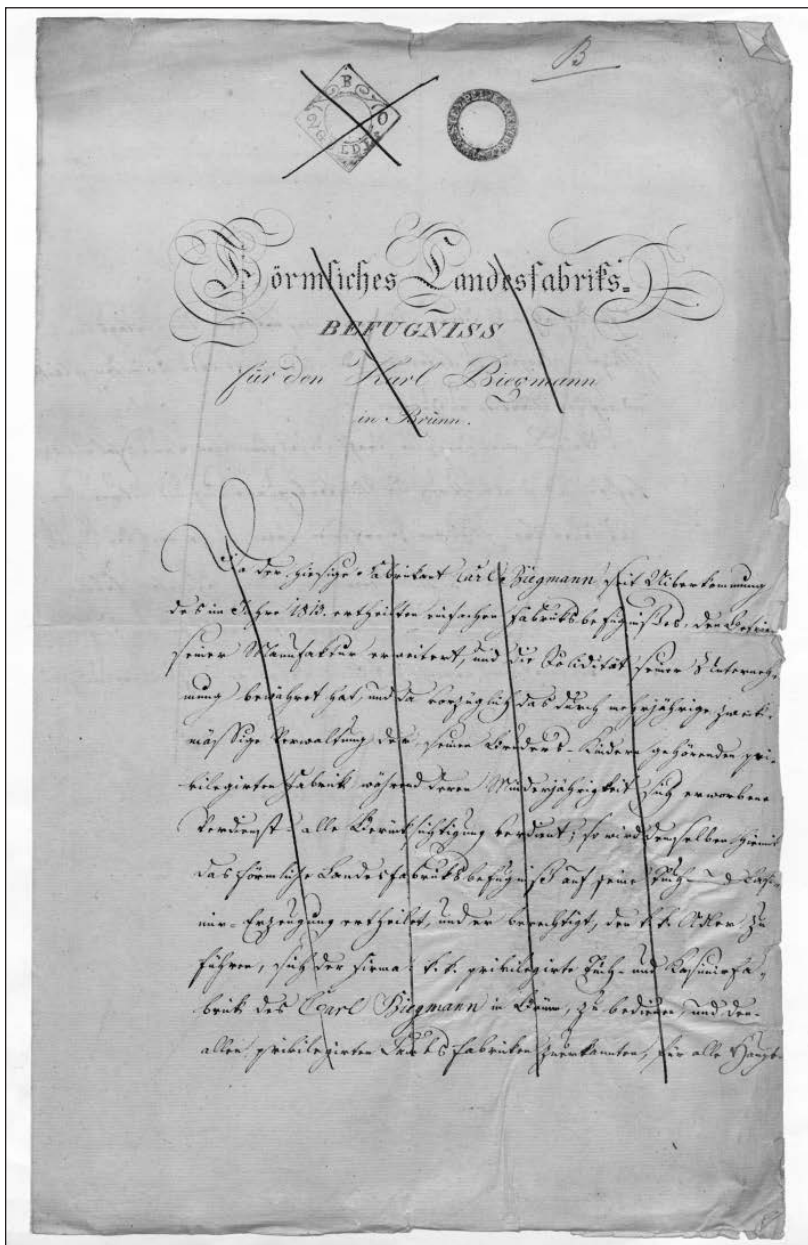 B
Förmliches Landesfabriks-
BEFUGNISS
für den Karl Biegmann
in Brünn.
Da der hiesige Fabrikant Carl Biegmann seit Uiberkommung
des in Jahre 1813. ertheilten einfachen Fabriksbefugnißes, den Betrieb
seiner Manufaktur erweitert, und die Solidität seiner Unterneh-
mung bewähret hat, und da vorzüglich das durch mehrjährige zweck-
mässige Verwaltung der, seinen Bruders-Kindern gehörenden pri-
vilegirten Fabrik während deren Minderjährigkeit sich erworbene
Verdienst alle Berücksichtigung verdient; so wird demselben hiemit
das förmliche Landesfabriksbefugniß auf seine Tuch- & Casi-
mir-Erzeugung ertheilet, und er berechtigt, den k. k. Adler zu
führen, sich der Firma: k. k. privilegirte Tuch- und Kasimirfa-
brik des Carl Biegmann in Brünn, zu bedienen, und den
allen privilegirten Landsfabriken zuerkannten, für alle Haupt-